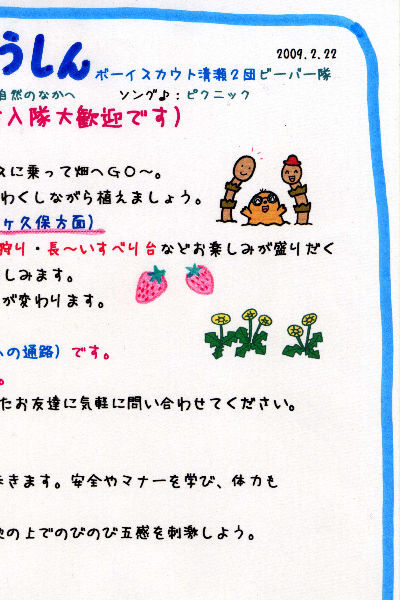 2009.2.22
うしん ボーイスカウト清瀬2団ビーバー隊
自然のなかへ ソング♪:ピクニック
入隊大歓迎です)
スに乗って畑へGO~。
わくしながら植えましょう。
ヶ久保方面)
狩り・長~いすべり台などお楽しみが盛りだく
しみます。
が変わります。
への通路)です。
。
たお友達に気軽に問い合わせてください。
歩きます。安全やマナーを学び、体力も
地の上でのびのび五感を刺激しよう。